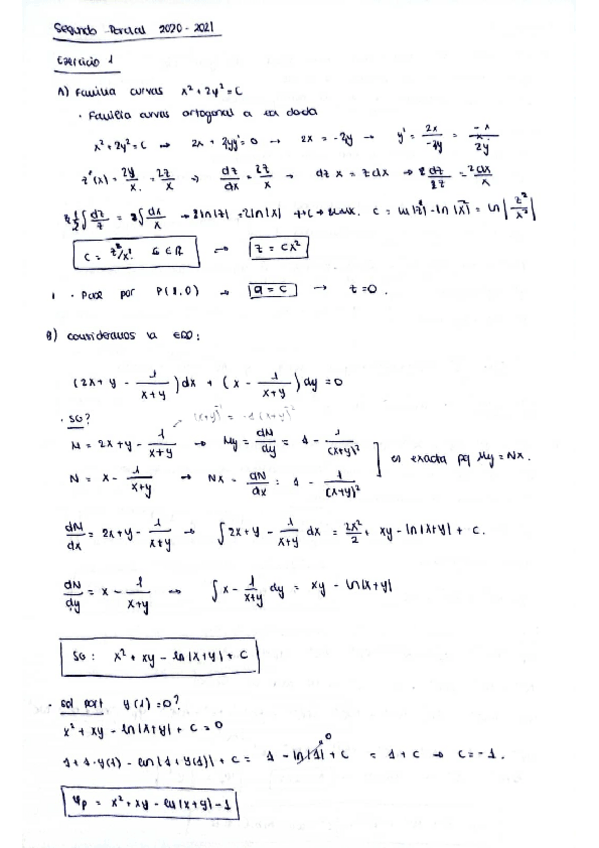 Segundo Parcial 2020-2021
Ejercicio 1
A) Familia curvas x² + 2y² = C
· Familia curvas ortogonal a la dada
x² + 2y² = C → 2x + 2yy' = 0 → 2x = -2y → y' = 2x/-2y = -x/2y
z'(x) = 2y/x = 2z/x → dz/dx = 2z/x → dz x = z dx
C = z²/x! → z = Cx²
· Pase por P(1,0) → 0 = C → z = 0.
B) consideramos la EDO:
(2x + y - 1/(x+y)) dx + (x - 1/(x+y)) dy = 0
· SG?
M = 2x + y - 1/(x+y) → My = dM/dy = 1 - 1/(x+y)²
N = x - 1/(x+y) → Nx = dN/dx = 1 - 1/(x+y)² es exacta pq My = Nx.
dN/dx = 2x + y - 1/(x+y) → ∫ 2x + y - 1/(x+y) dx = 2x²/2 + xy - ln|x+y| + C.
dN/dy = x - 1/(x+y) → ∫ x - 1/(x+y) dy = xy - ln|x+y|
SG: x² + xy - ln|x+y| + C
· Sol. part y(1) = 0?
x² + xy - ln|x+y| + C = 0
1 + 1·y(1) - ln|1 + y(1)| + C = 1 - ln|1| + C = 1 + C → C = -1.
= x² + xy - ln|x+y| - 1